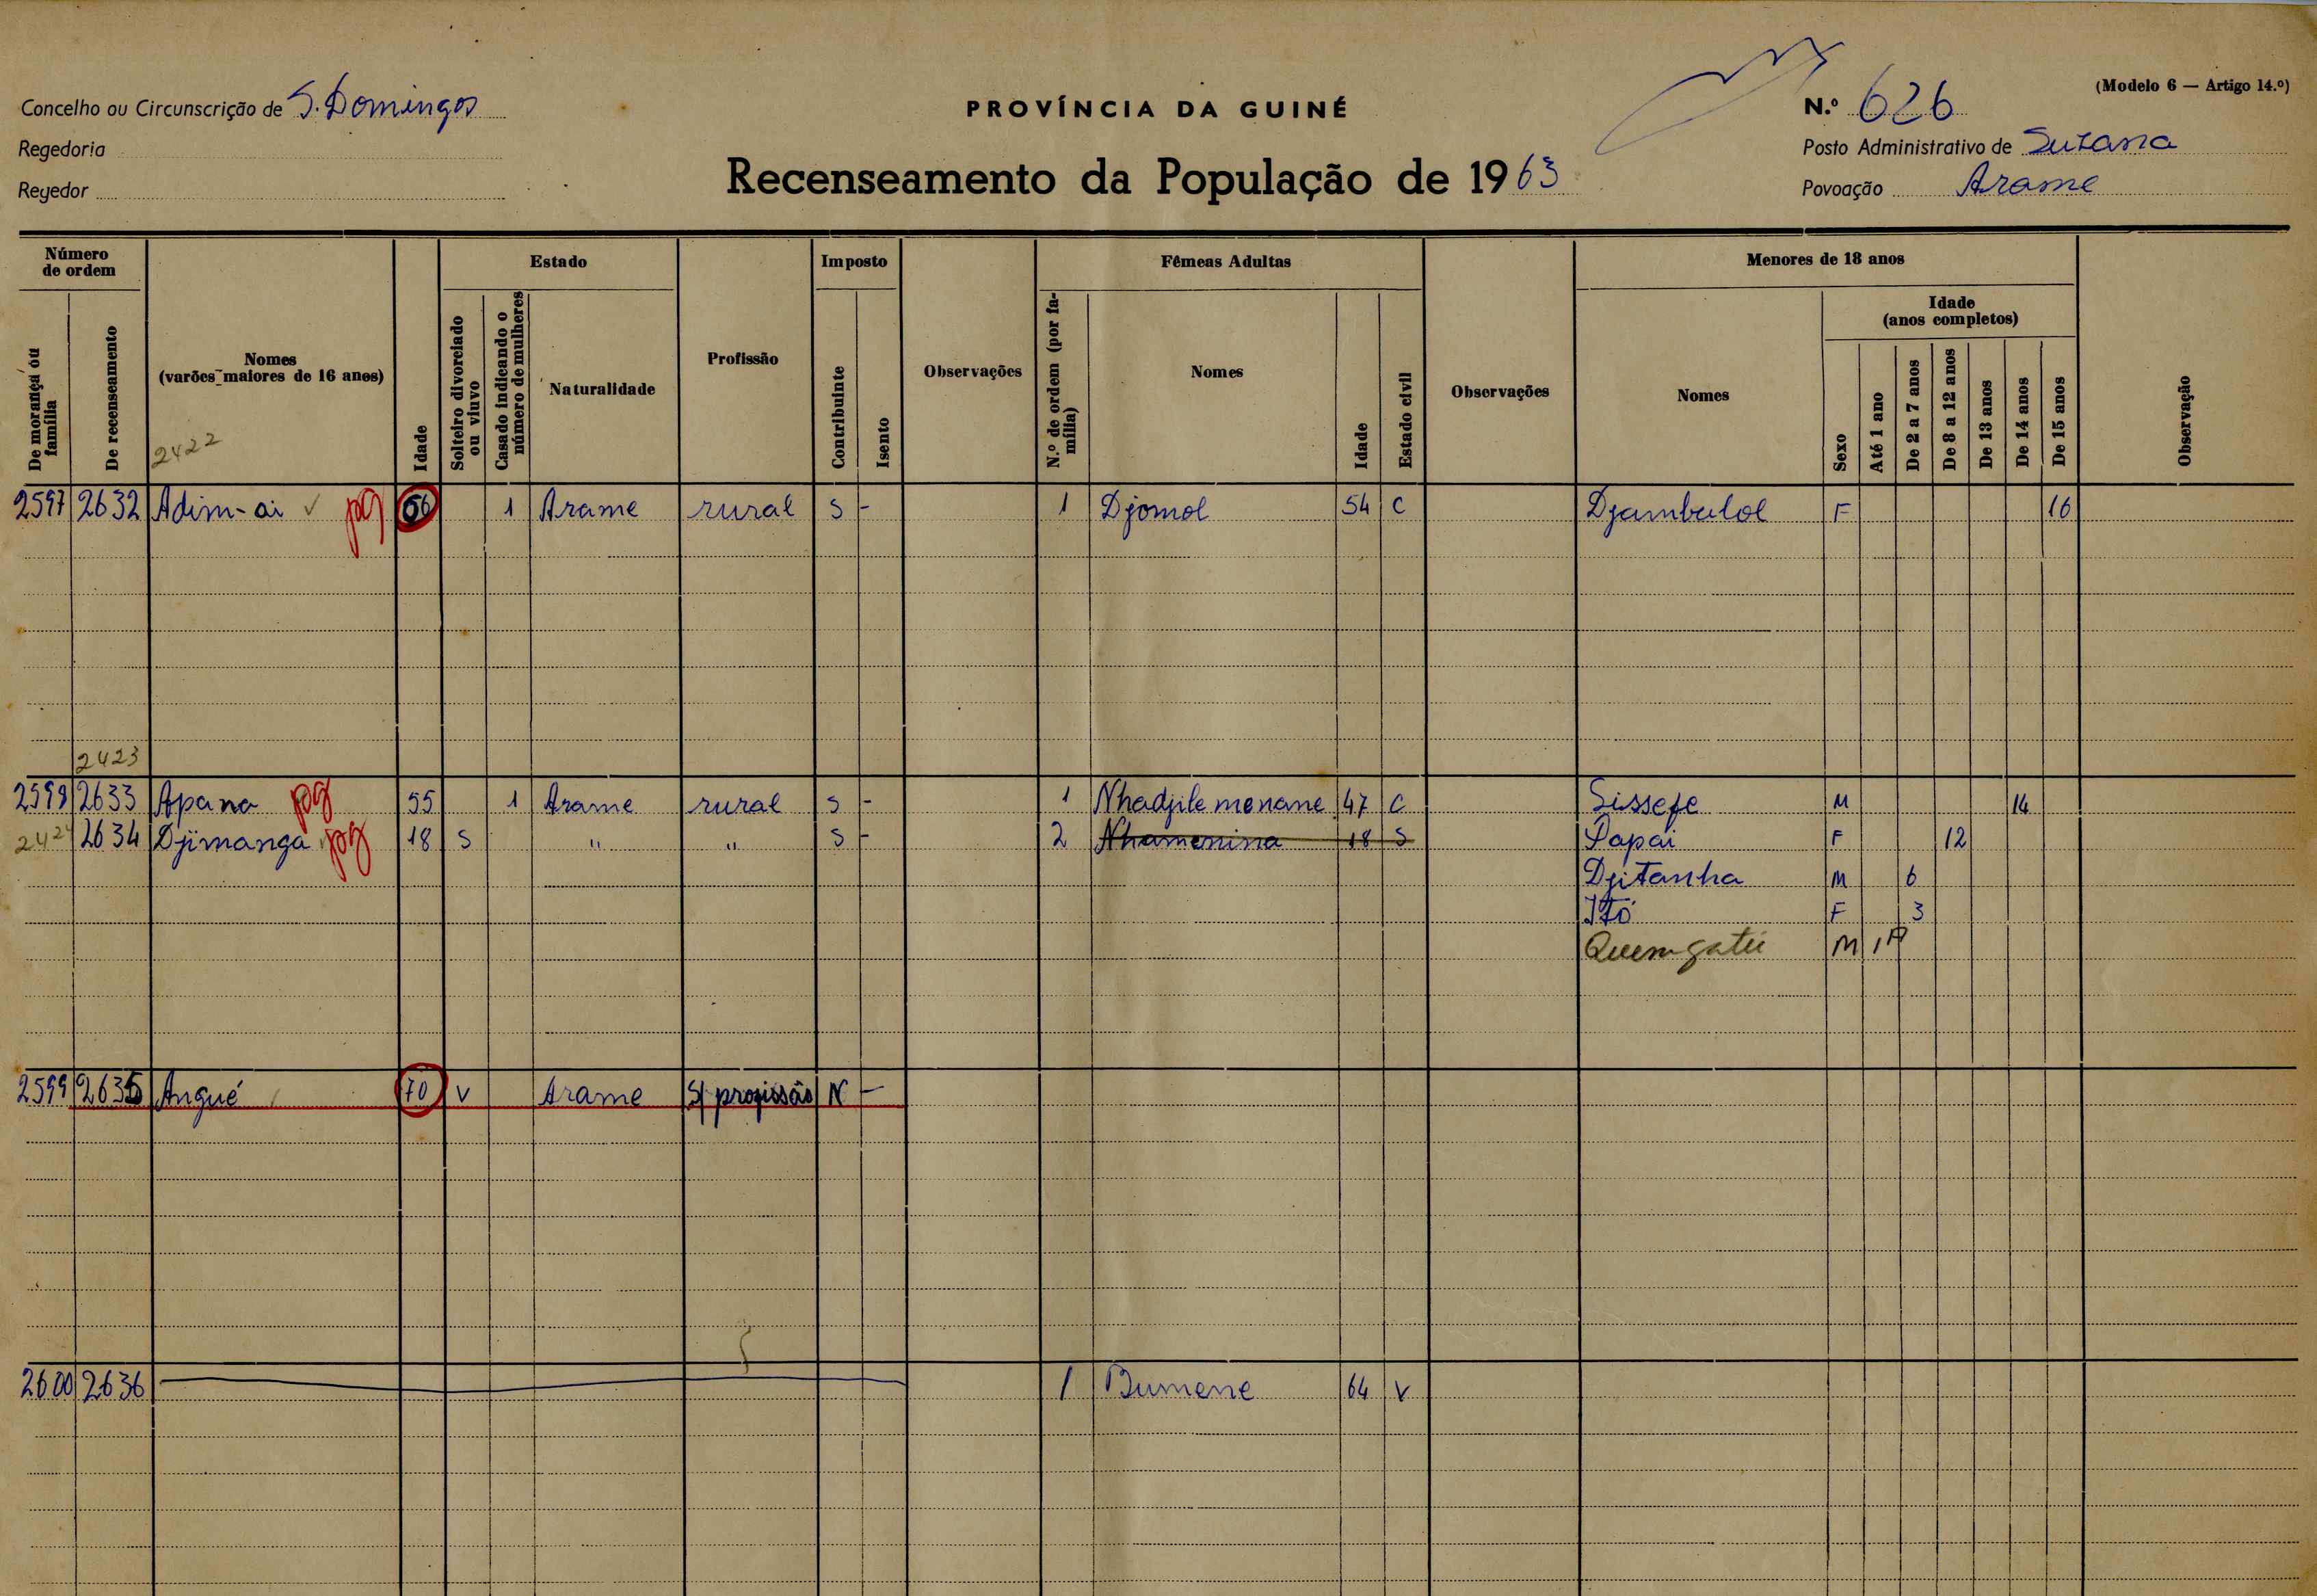 (Modelo 6 — Artigo 14.º)
Concelho ou Circunscrição de S. Domingos
PROVÍNCIA DA GUINÉ
N.º 626
Regedoria
Posto Administrativo de Suzana
Regedor
Recenseamento da População de 1963
Povoação Arame
Número de ordem
Estado
Imposto
Fêmeas Adultas
Menores de 18 anos
De morança ou família
De recenseamento
Nomes (varões maiores de 16 anos)
Idade
Solteiro divorciado ou viuvo
Casado indicando o número de mulheres
Naturalidade
Profissão
Contribuinte
Isento
Observações
N.º de ordem (por família)
Nomes
Idade
Estado civil
Observações
Nomes
Sexo
Idade (anos completos)
Até 1 ano
De 2 a 7 anos
De 8 a 12 anos
De 13 anos
De 14 anos
De 15 anos
Observação
2422
2597 2632 Adim-ai pg 66 1 Arame rural S - 1 Djomol 54 C Djambulol F 16
2423
2598 2633 Apana pg 55 1 Arame rural S - 1 Nhadjile menane 47 C Sissefe M 14
2424 2634 Djimanga pg 18 S " " S - 2 Nhamenina 18 S Papai F 12
Djitanha M 6
Itó F 3
Quemgatú M 1A
2599 2635 Angué 70 V Arame S/ profissão N -
2600 2636 1 Bumene 64 V